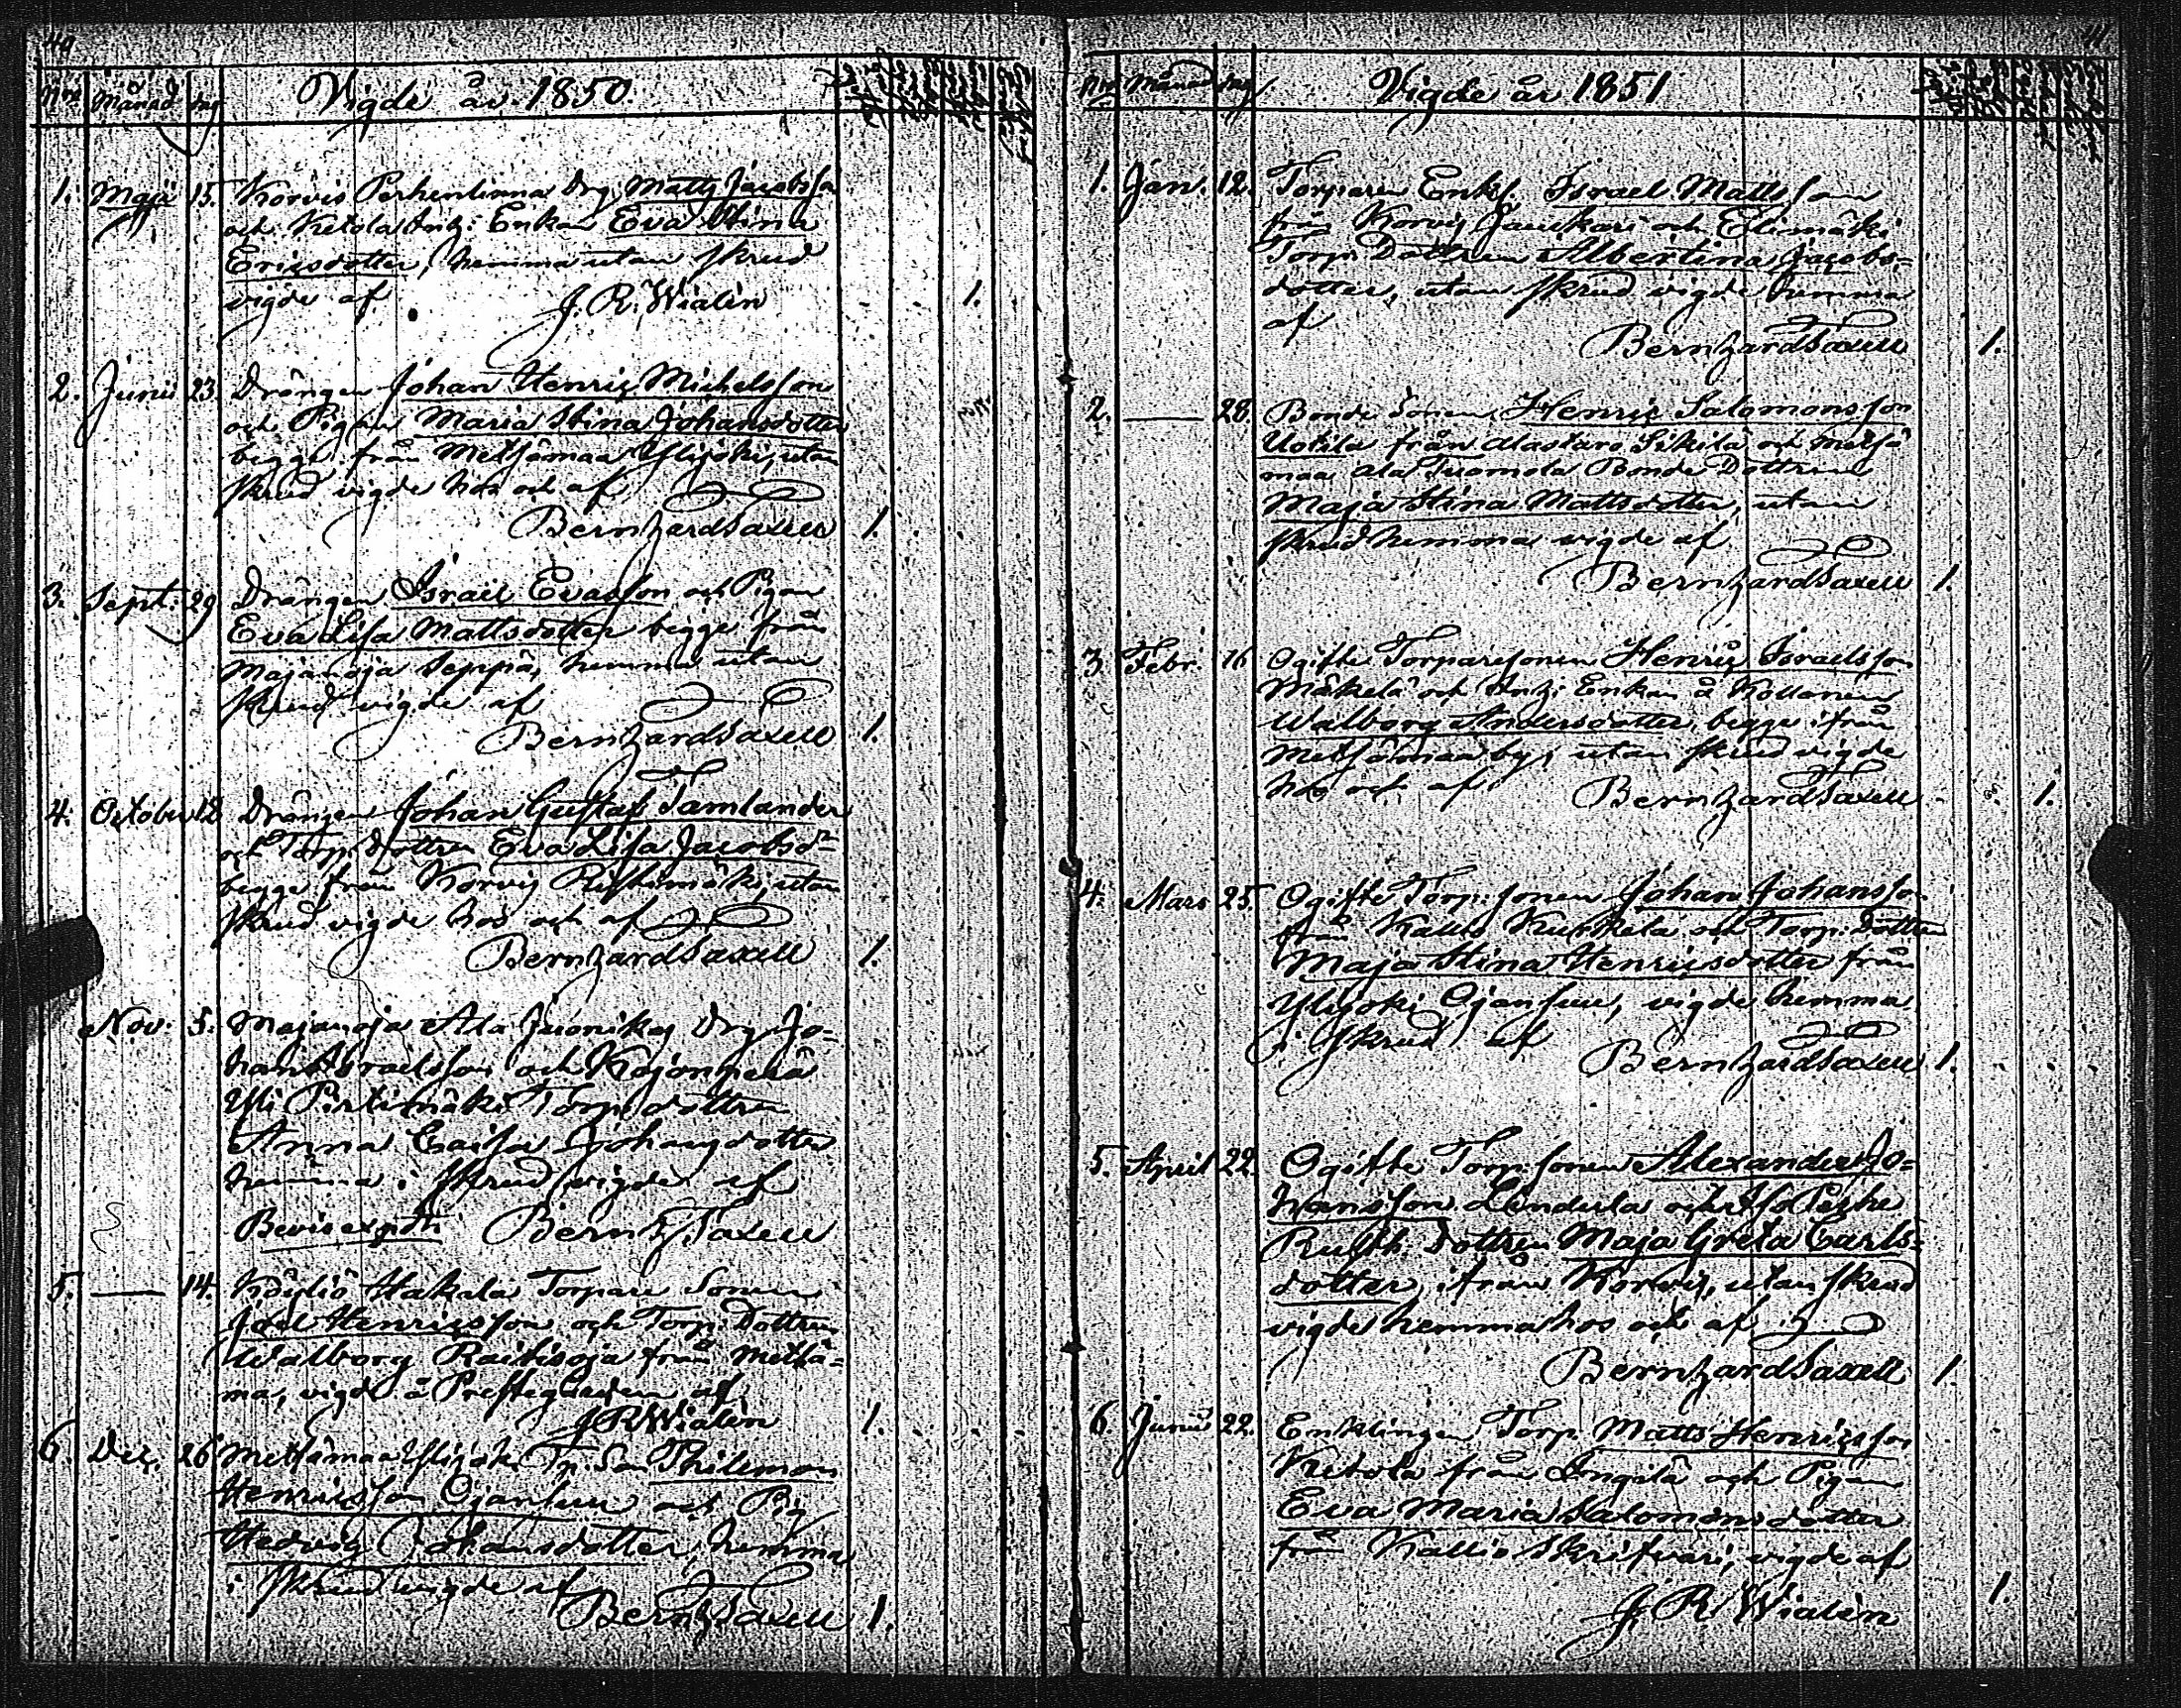 40
Nro Månad dag Vigde år 1850.
1. Maji 15. Korvis Perhenlinna Drg. Matts Jacobsson
och Ketola Inh: Enkan Eva Stina
Ericsdotter, hemma utan skrud
vigde af J. R. Wialén 1.
2. Junii 23. Drängen Johan Henric Michelsson
och Pigan Maria Stina Johansdotter
begge från Metsämaa Ylijoki, utan
skrud vigde hos och af
Bernhard Saxell 1.
3. Sept: 29 Drängen Israel Evasson och Pigan
Eva Lisa Mattsdotter begge från
Majanoja Seppä, hemma utan
skrud vigde af
Bernhard Saxell 1.
4. October 12 Drängen Johan Gustaf Tamlander
och Torp. Dottren Eva Lisa Jacobsd
begge från Korvis Riihimäki, utan
skrud vigde hos och af
Bernhard Saxell 1.
Nov: 5. Majanoja Ala Drg Jo-
han Israelsson och Kojonperä
Yli Pirtimäki Torp. dottren
Anna Caisa Johansdotter
hemma i skrud vigde af
Bevis Bernh. Saxell
5. — 14. Köyliö Hakala Torpare Sonen
Joel Henricsson och Torp. Dottren
Walborg Raitisoja från Metsä-
ma, vigde å Prestegården af
J R Wialén 1.
6. Dec. 26 Metsämaa Ylijoki Tp. Son Philemon
Henricsson Ojansuu och Pig
Hedvig Johansdotter, hemma
i skrud vigde af
Bernh Saxell 1.
41
Nro Månad dag Vigde år 1851
1. Jan. 12. Torparen Enkl. Israel Mattsson
från Korvis Jauckari och Elimäki
Torp. Dottren Albertina Jacobs-
dotter, utan skrud vigde hemma
af
Bernhard Saxell 1.
2. — 28. Bonde Sonen Henric Salomonsson
Uotila från Alastaro Sikilä och Metsä
maa Ala Tuomola Bonde Dottren
Maja Stina Mattsdotter, utan
skrud hemma vigde af
Bernhard Saxell 1.
3 Febr. 16 Ogifte Torparesonen Henric Israelsson
Mäkelä och Inh: Enkan
Walborg Andersdotter, begge ifrån
Metsämaa by, utan skrud vigde
hos och af Bernhard Saxell 1.
4. Mars 25. Ogifte Torp: sonen Johan Johansson
från Kallio Kuckela och Torp. Dottren
Maja Stina Henricsdotter från
Ylijoki Ojansuu, vigde hemma
i skrud af
Bernhard Saxell 1.
5. April 22. Ogifte Torp: sonen Alexander Jo-
hansson Lenderla och
Dottren Maja Greta Carls-
dotter, ifrån Korvis, utan skrud
vigde hemma hos och af
Bernhard Saxell 1.
6. Junii 22. Enklingen Torp. Matts Henricsson
Ketola från Ingilä och Pigan
Eva Maria Salomonsdotter
från Kallio Skrifvari, vigde af
J. R. Wialén 1.